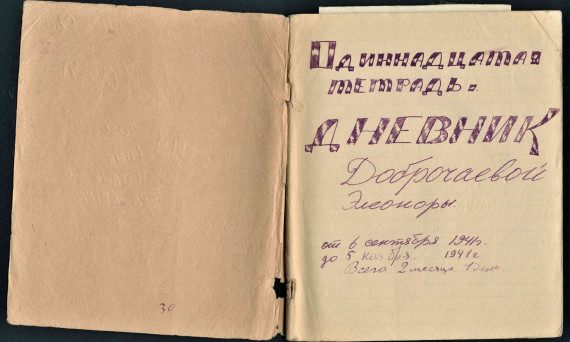 Одиннадцатая
тетрадь.
ДНЕВНИК
Доброчаевой
Элеоноры.
от 6 сентября 1941г.
до 5 ноября 1941г.
Всего 2 месяца
30